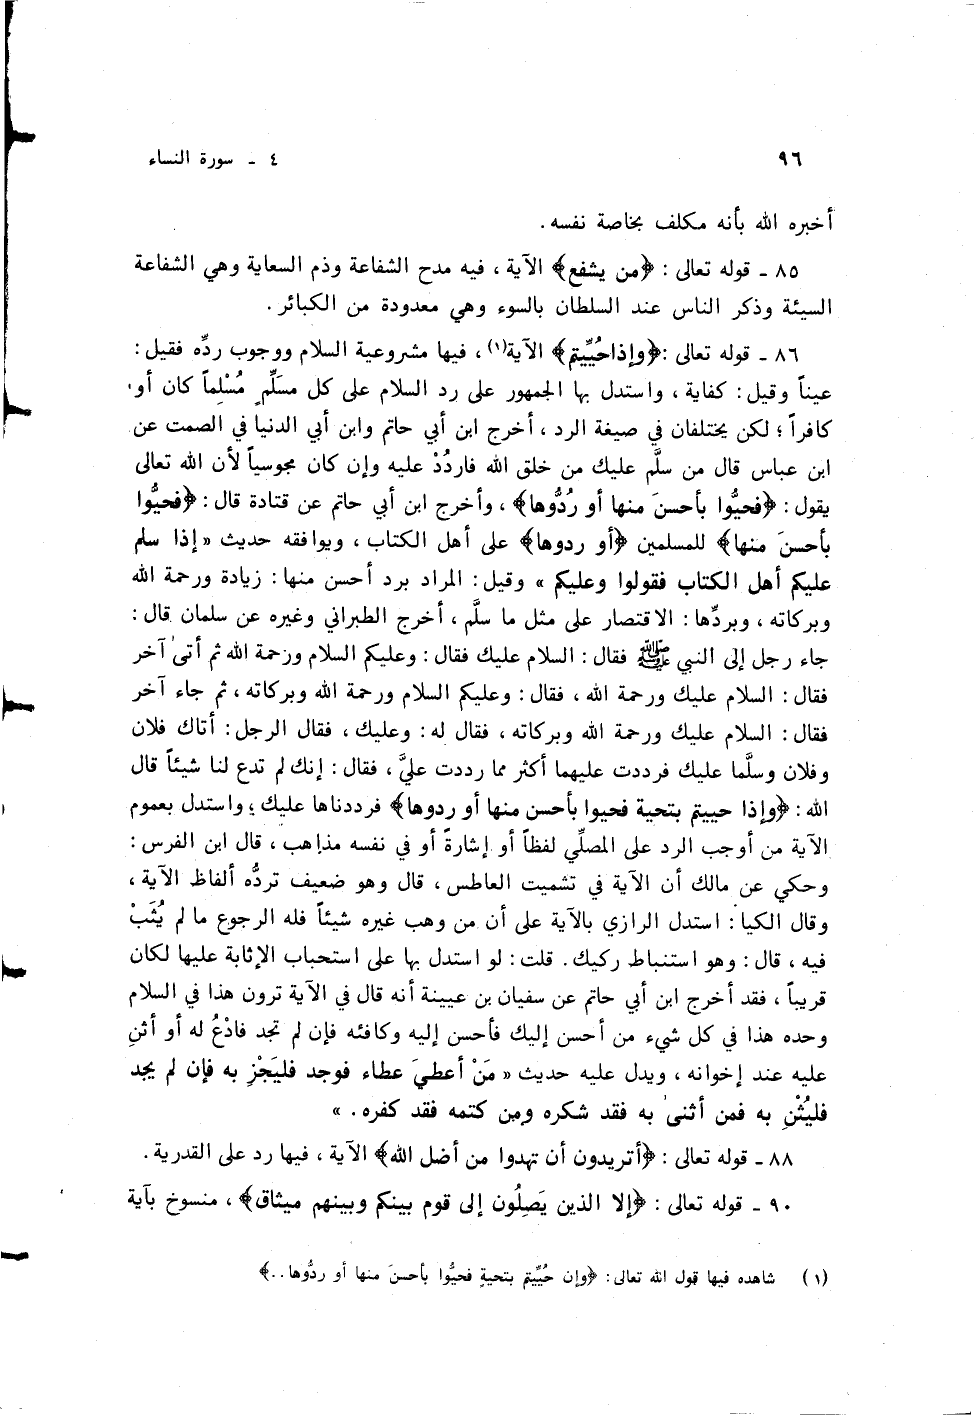 ٩٦
٤ - سورة النساء
أخبره الله بأنه مكلف بخاصة نفسه .
٨٥ - قوله تعالى : ﴿من يشفع﴾ الآية ، فيه مدح الشفاعة وذم السعاية وهي الشفاعة
السيئة وذكر الناس عند السلطان بالسوء وهي معدودة من الكبائر .
٨٦ - قوله تعالى : ﴿وإذا حُيِّيتم﴾ الآية(١) ، فيها مشروعية السلام ووجوب ردِّه فقيل :
عيناً وقيل : كفاية ، واستدل بها الجمهور على رد السلام على كل مسَلِّمٍ مُسْلِماً كان أو
كافراً ؛ لكن يختلفان في صيغة الرد ، أخرج ابن أبي حاتم وابن أبي الدنيا في الصمت عن
ابن عباس قال من سلَّم عليك من خلق الله فاردُدْ عليه وإن كان مجوسياً لأن الله تعالى
يقول : ﴿فحيُّوا بأحسنَ منها أو رُدُّوها﴾ ، وأخرج ابن أبي حاتم عن قتادة قال : ﴿فحيُّوا
بأحسنَ منها﴾ للمسلمين ﴿أو ردوها﴾ على أهل الكتاب ، ويوافقه حديث « إذا سلم
عليكم أهل الكتاب فقولوا وعليكم » وقيل : المراد برد أحسن منها : زيادة ورحمة الله
وبركاته ، وبردِّها : الاقتصار على مثل ما سلَّم ، أخرج الطبراني وغيره عن سلمان قال :
جاء رجل إلى النبي ﷺ فقال : السلام عليك فقال : وعليكم السلام ورحمة الله ثم أتى آخر
فقال : السلام عليك ورحمة الله ، فقال : وعليكم السلام ورحمة الله وبركاته ، ثم جاء آخر
فقال : السلام عليك ورحمة الله وبركاته ، فقال له : وعليك ، فقال الرجل : أتاك فلان
وفلان وسلَّما عليك فرددت عليهما أكثر مما رددت عليَّ ، فقال : إنك لم تدع لنا شيئاً قال
الله : ﴿وإذا حييتم بتحية فحيوا بأحسن منها أو ردوها﴾ فرددناها عليك ؛ واستدل بعموم
الآية من أوجب الرد على المصلِّي لفظاً أو إشارةً أو في نفسه مذاهب ، قال ابن الفرس :
وحكي عن مالك أن الآية في تشميت العاطس ، قال وهو ضعيف تردُّه ألفاظ الآية ،
وقال الكيا : استدل الرازي بالآية على أن من وهب غيره شيئاً فله الرجوع ما لم يُثَبْ
فيه ، قال : وهو استنباط ركيك . قلت : لو استدل بها على استحباب الإثابة عليها لكان
قريباً ، فقد أخرج ابن أبي حاتم عن سفيان بن عيينة أنه قال في الآية ترون هذا في السلام
وحده هذا في كل شيء من أحسن إليك فأحسن إليه وكافئه فإن لم تجد فادْعُ له أو أثنِ
عليه عند إخوانه ، ويدل عليه حديث « مَنْ أعطيَ عطاء فوجد فليَجْزِ به فإن لم يجد
فليُثْنِ به فمن أثنى به فقد شكره ومن كتمه فقد كفره . »
٨٨ - قوله تعالى : ﴿أتريدون أن تهدوا من أضل الله﴾ الآية ، فيها رد على القدرية .
٩٠ - قوله تعالى : ﴿إلا الذين يَصِلُون إلى قوم بينكم وبينهم ميثاق﴾ ، منسوخ بآية
(١) شاهده فيها قول الله تعالى : ﴿وإن حُيِّيتم بتحيةٍ فحيُّوا بأحسنَ منها أو ردُّوها . .﴾